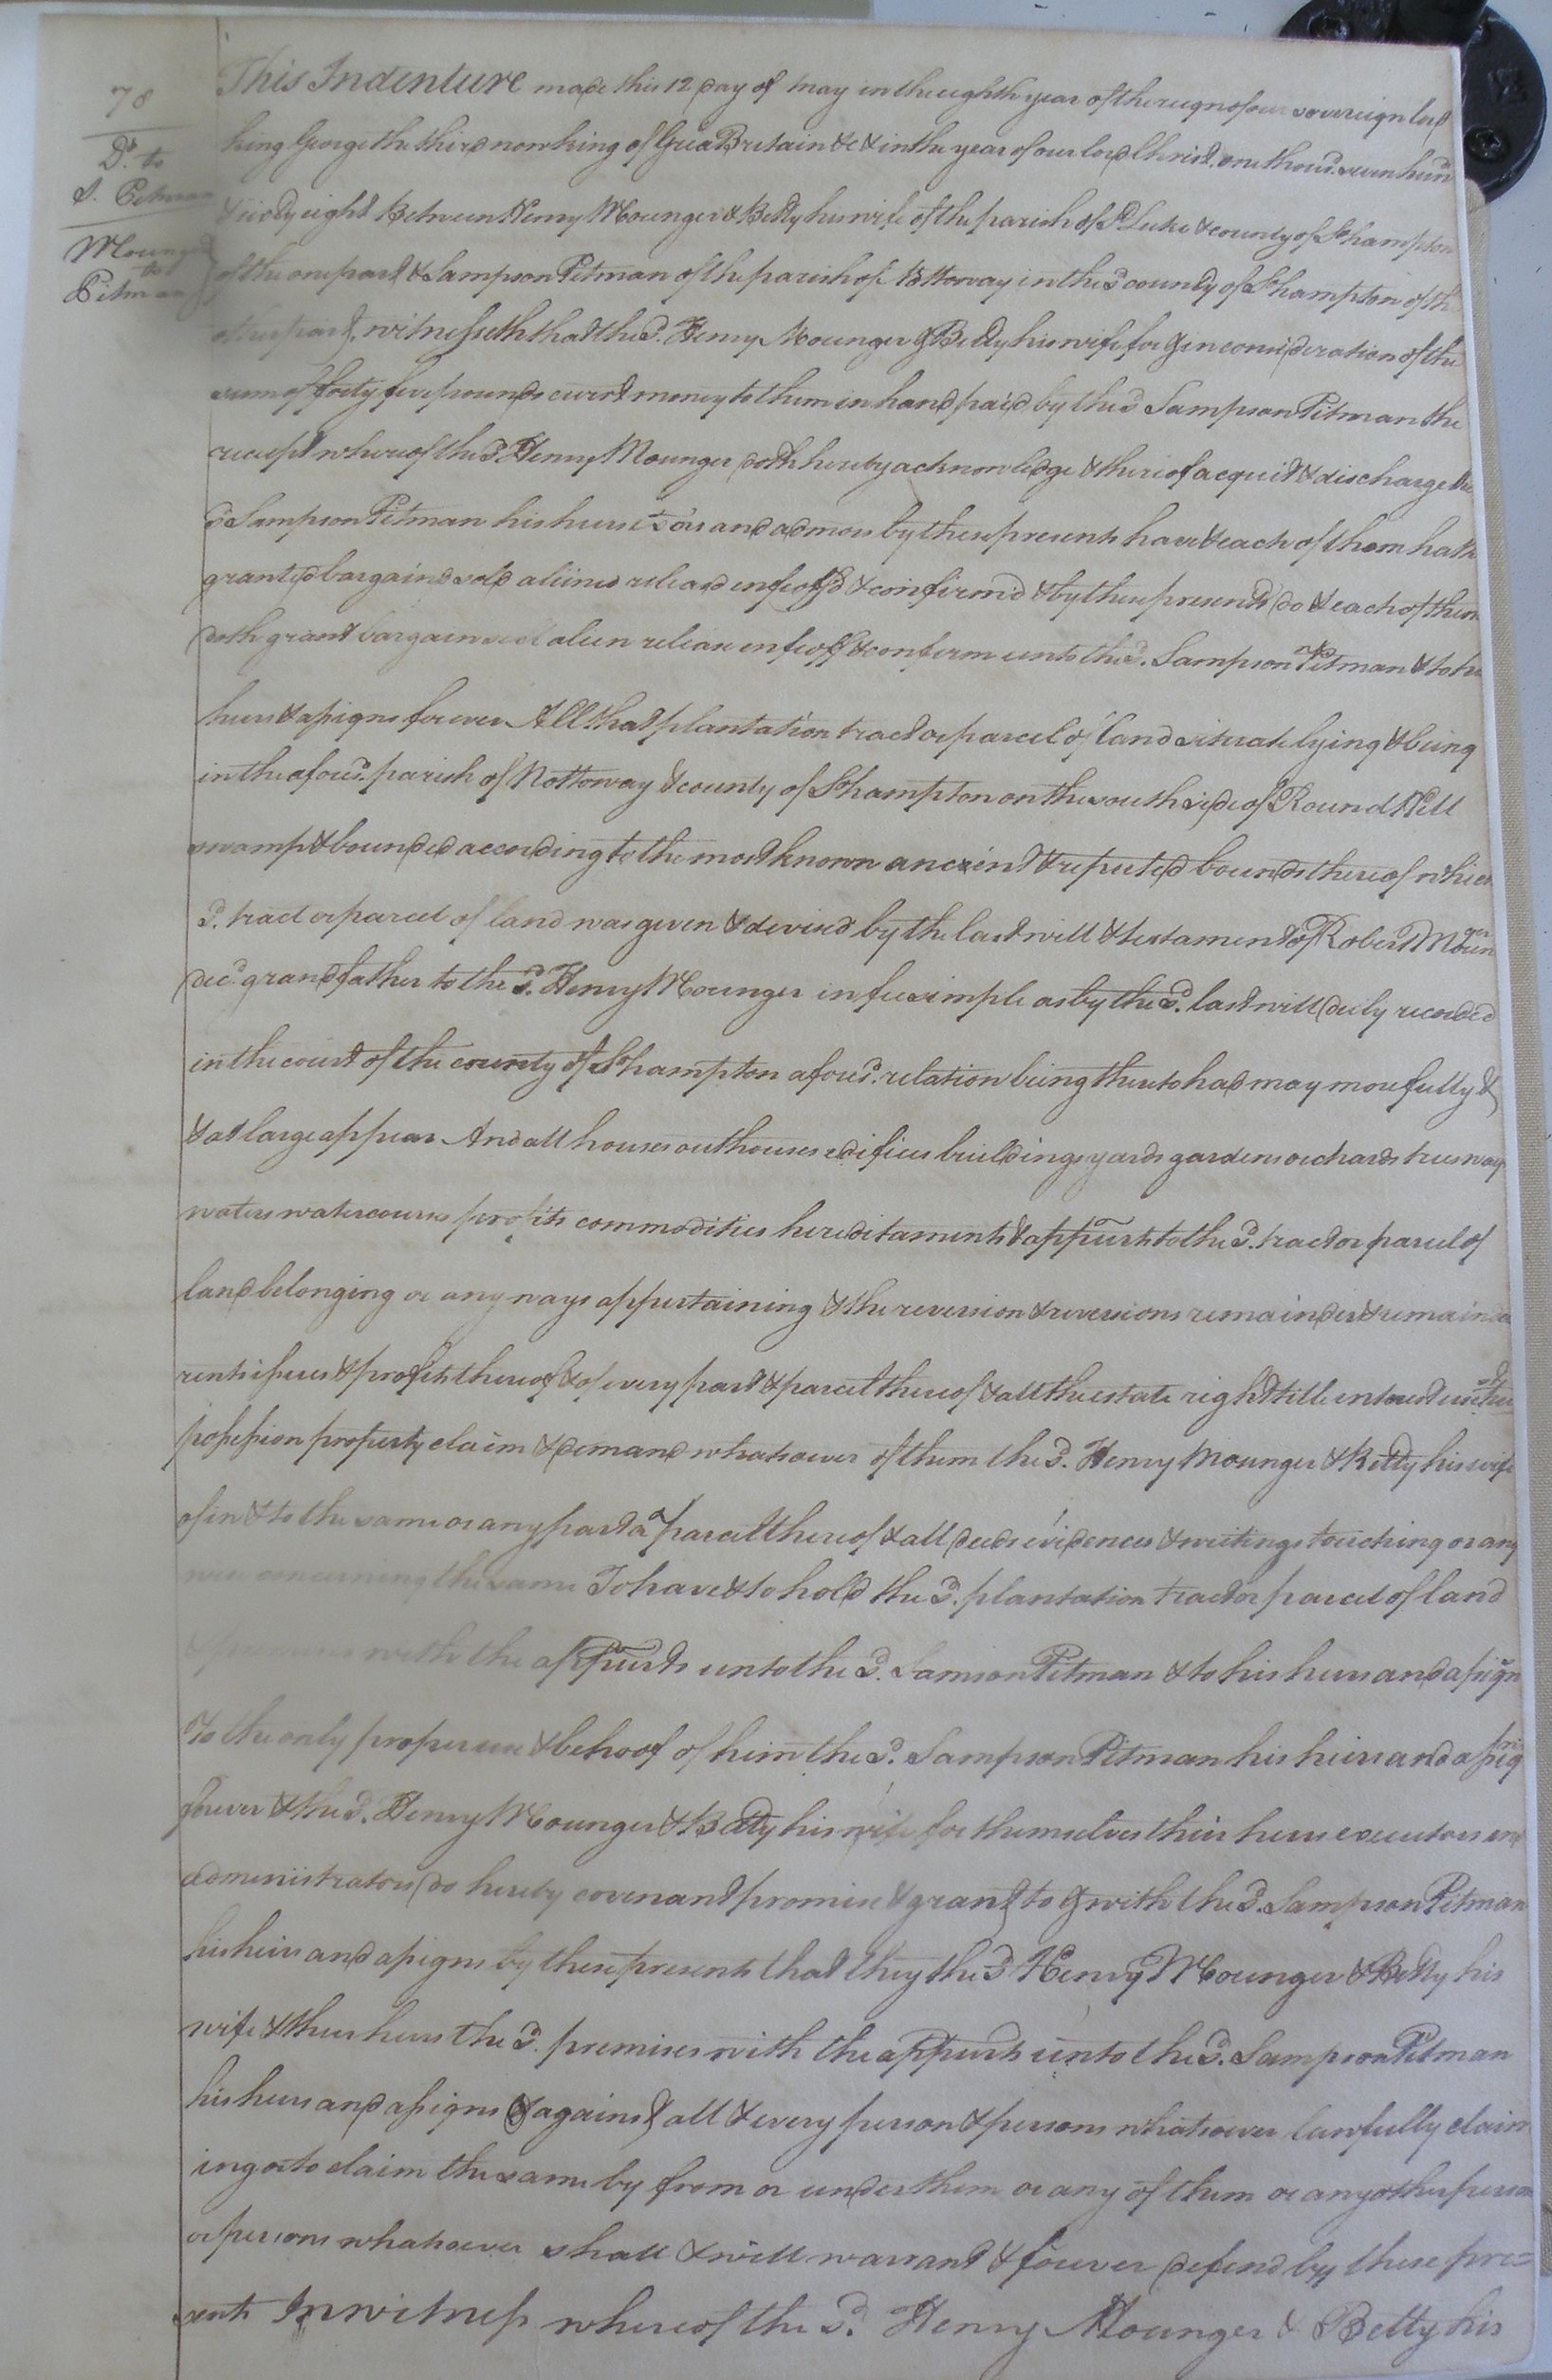 78
Dd. to
S. Pitman
Mounger
to
Pitman
This Indenture made this 12 day of May in the eighth year of the reign of our sovereign lord
king George the third now king of Great Britain &c & in the year of our lord Christ one thousd. seven hund
& sixty eight Between Henry Mounger & Betty his wife of the parish of St Luke & county of Sohampton
of the one part & Sampson Pitman of the parish of Nottoway in the sd county of Sohampton of the
other part, witnesseth that the sd. Henry Mounger & Betty his wife for & in consideration of the
sum of forty five pounds currt money to them in hand paid by the sd Sampson Pitman the
receipt whereof the sd Henry Mounger doth hereby acknowledge & thereof acquit & discharge the
sd Sampson Pitman his heirs exors and admors by these presents have & each of them hath
granted bargaind sold aliened releasd enfeoffd & confirmd & by these presents do & each of them
doth grant bargain sell alien release enfeoff & confirm unto the sd. Sampson Pitman & to his
heirs & assigns forever All that plantation tract or parcel of land situate lying & being
in the aforesd. parish of Nottoway & county of Sohampton on the south side of Round Hill
swamp & bounded according to the most known ancient & reputed bounds thereof which
sd. tract or parcel of land was given & devised by the last will & testament of Robert Mounger
decd grandfather to the sd. Henry Mounger in fee simple as by the sd. last will duly recorded
in the court of the county of Sohampton aforesd. relation being thereto had may more fully &
& at large appear And all houses outhouses edifices buildings yards gardens orchards trees ways
waters watercourses profits commodities hereditaments & appurts to the sd. tract or parcel of
land belonging or any ways appertaining & the reversion & reversions remainder & remainders
rents issues & profits thereof & of every part & parcel thereof & all the estate right title interest use trust
possession property claim & demand whatsoever of them the sd. Henry Mounger & Betty his wife
of in & to the same or any part or parcel thereof & all deeds evidences & writings touching or any
wise concerning the same To have & to hold the sd. plantation tract or parcel of land
& premises with the appurts unto the sd. Samson Pitman & to his heirs and assigns
To the only proper use & behoof of him the sd. Sampson Pitman his heirs and assigns
forever & the sd. Henry Mounger & Betty his wife for themselves their heirs executors and
administrators do hereby covenant promise & grant to & with the sd. Sampson Pitman
his heirs and assigns by these presents that they the sd Henry Mounger & Betty his
wife & their heirs the sd. premises with the appurts unto the sd. Sampson Pitman
his heirs and assigns & against all & every person & persons whatsoever lawfully claim
ing or to claim the same by from or under them or any of them or any other person
or persons whatsoever shall & will warrant & forever defend by these pre=
sents In witness whereof the sd. Henry Mounger & Betty his